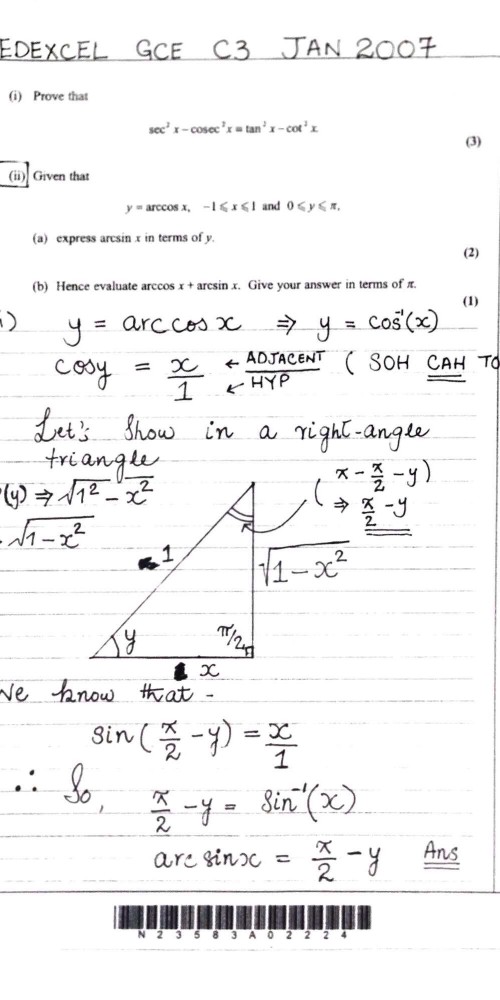 EDEXCEL GCE C3 JAN 2007
(i) Prove that
sec² x – cosec² x ≡ tan² x – cot² x.
(3)
(ii) Given that
y = arccos x, –1 ⩽ x ⩽ 1 and 0 ⩽ y ⩽ π,
(a) express arcsin x in terms of y.
(2)
(b) Hence evaluate arccos x + arcsin x. Give your answer in terms of π.
(1)
i) y = arccos x ⇒ y = cos⁻¹(x)
cos y = x/1 ← ADJACENT ← HYP ( SOH CAH TO
Let's show in a right-angle
triangle
(π - π/2 - y)
(y) ⇒ √1² - x²
⇒ π/2 - y
√1 - x²
1
√1 - x²
y
π/2
x
We know that -
sin(π/2 - y) = x/1
∴ So, π/2 - y = sin⁻¹(x)
arc sin x = π/2 - y Ans
N 2 3 5 8 3 A 0 2 2 2 4